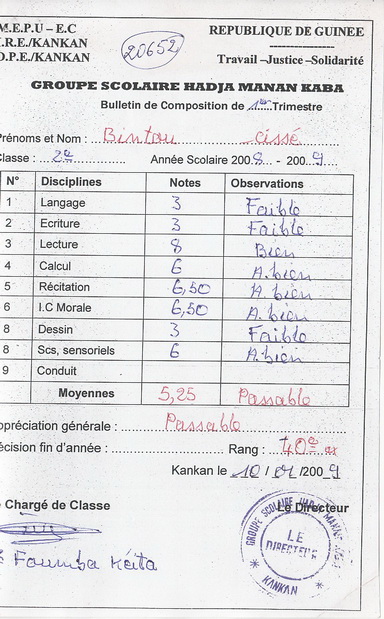 M.E.P.U – E.C
I.R.E./KANKAN
D.P.E./KANKAN
20652
REPUBLIQUE DE GUINÉE
Travail –Justice –Solidarité
GROUPE SCOLAIRE HADJA MANAN KABA
Bulletin de Composition de 1er Trimestre
Prénoms et Nom : Bintou cissé
Classe : 2e Année Scolaire 2008 - 2009
N° Disciplines Notes Observations
1 Langage 3 Faible
2 Ecriture 3 Faible
3 Lecture 8 Bien
4 Calcul 6 A.bien
5 Récitation 6,50 A.bien
6 I.C Morale 6,50 A.bien
8 Dessin 3 Faible
8 Scs, sensoriels 6 A.bien
9 Conduit
Moyennes 5,25 Passable
Appréciation générale : Passable
Décision fin d'année : Rang : 40e ex
Kankan le 10 / 01 /2009
Chargé de Classe Le Directeur
GROUPE SCOLAIRE HADJA MANAN
LE
DIRECTEUR
* KANKAN *
Foumba Keita